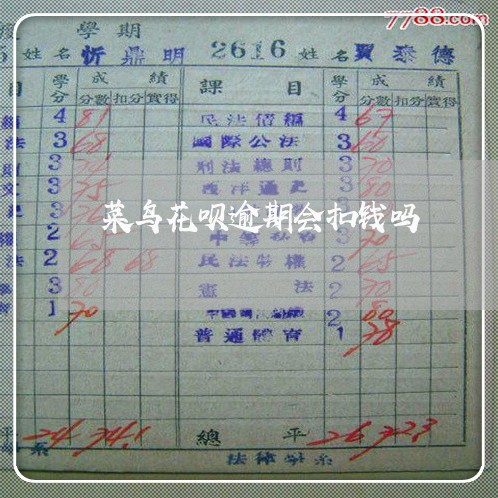 7788.com
學期
姓名 忻鼎明 2616 姓名 賈泰德
目 學分 成績 課目 學分 成績
分數 扣分 實得 分數 扣分 實得
4 81 民法債編 4 67
法 3 68 國際公法 3 60
3 刑法總則 3 70
3 75 西洋通史 3 80
菜鸟花呗逾期会扣钱吗
2 3 70
法 2 68 68 民法物權 2 65
3 80 憲法 2 70
1 70 2 80
普通體育 1 78
平 24 74.1 總平 26 72.3
系 法律學系